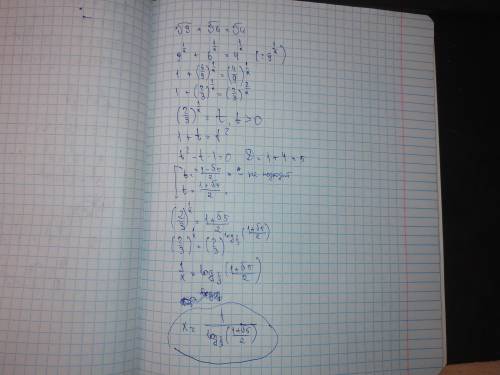 √9 + √6 = √4
9^(1/x) + 6^(1/x) = 4^(1/x) | : 9^(1/x)
1 + (6/9)^(1/x) = (4/9)^(1/x)
1 + (2/3)^(1/x) = (2/3)^(2/x)
(2/3)^(1/x) = t, t > 0
1 + t = t²
t² - t - 1 = 0 D = 1 + 4 = 5
t = (1-√5)/2 - не подходит
t = (1+√5)/2
(2/3)^(1/x) = (1+√5)/2
(2/3)^(1/x) = (2/3)^(log_(2/3) ((1+√5)/2))
1/x = log_(2/3) ((1+√5)/2)
x = 1/(log_(2/3) ((1+√5)/2))